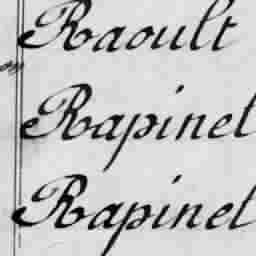 Raoult
Rapinel
Rapinel